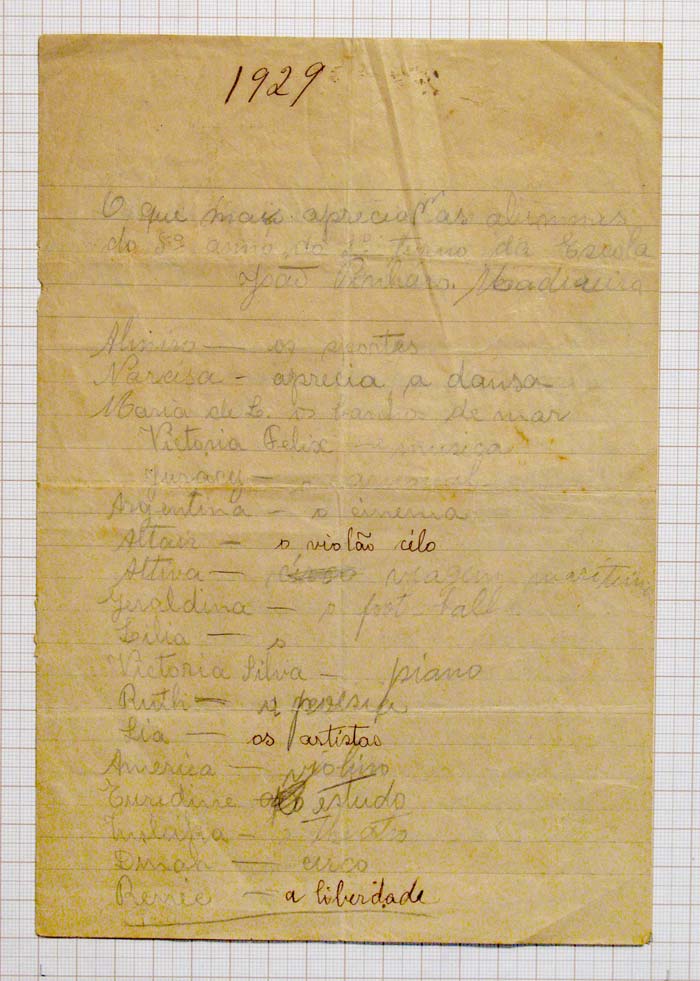 1929
O que mais apreciam as alumnas
do 5º anno do 1º turno da Escola
João
Almira — os sportes
Narcisa - aprecia a dansa
Maria de L. os banhos de mar
Victoria Felix — a musica
Juracy — o carnaval
Argentina - o cinema
Altair — o violão célo
Altiva — viagem maritima
Geraldina — o foot-ball
Lilia — o
Victoria Silva — piano
Ruth — a poesia
Lia — os artistas
America — violino
Euridine o estudo
- o Theatro
Dinah — circo
Renée — a liberdade